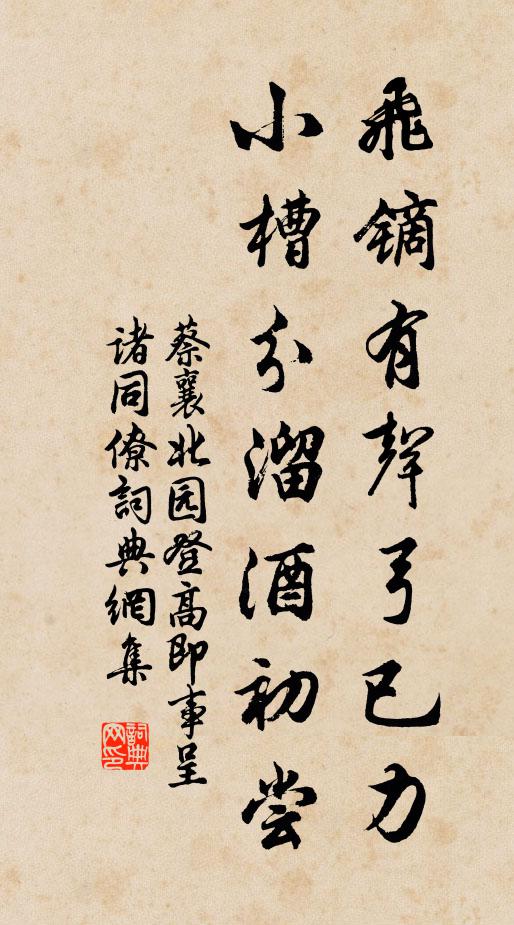 飛镝有聲弓已力
小槽分溜酒初尝
蔡襄北园登高即事呈
诸同僚詞典網集
詞典
网印